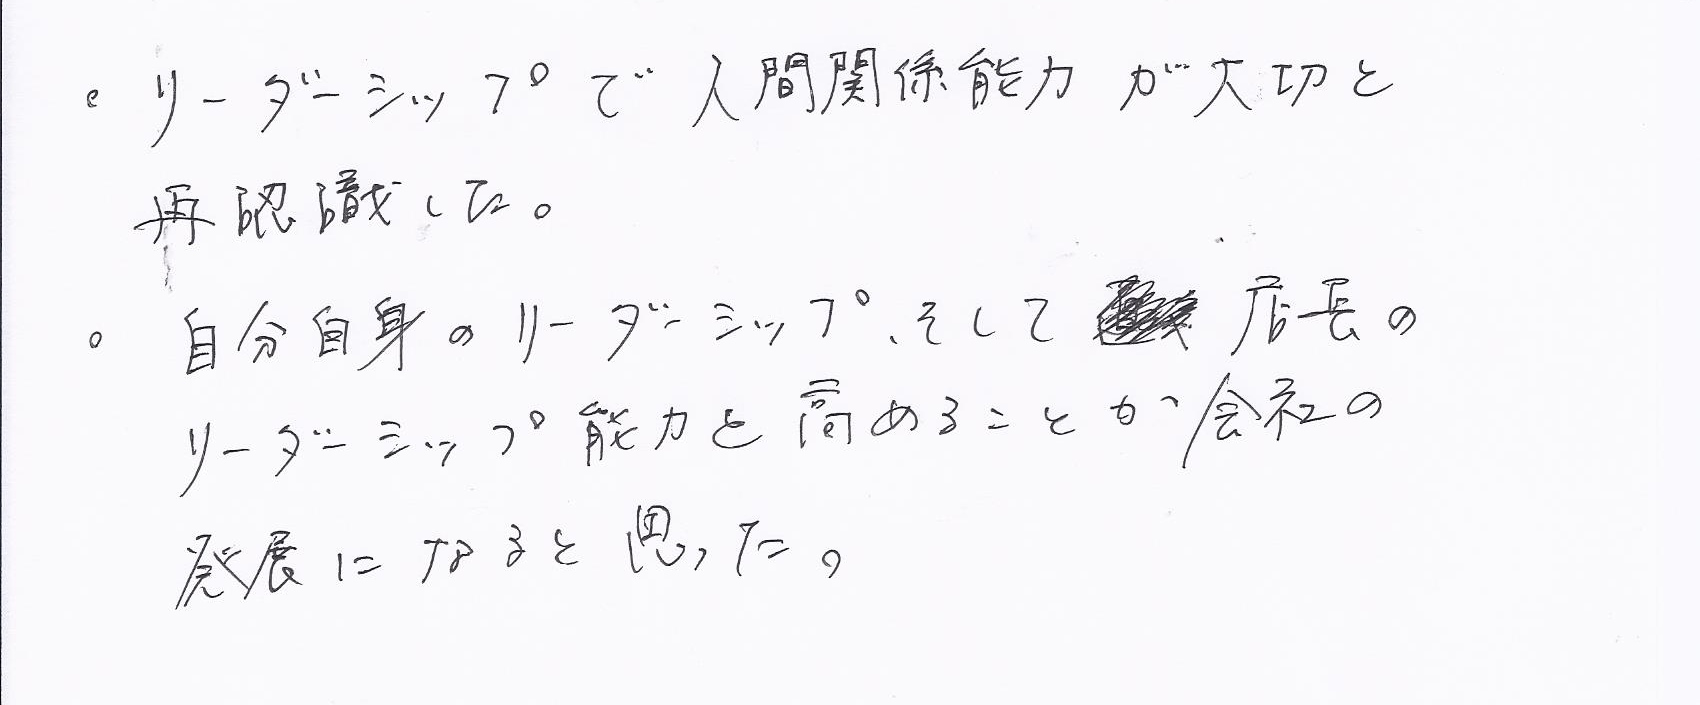 。リーダーシップで人間関係能力が大切と
再認識した。
。自分自身のリーダーシップ、そして店長の
リーダーシップ能力を高めることが会社の
発展になると思った。